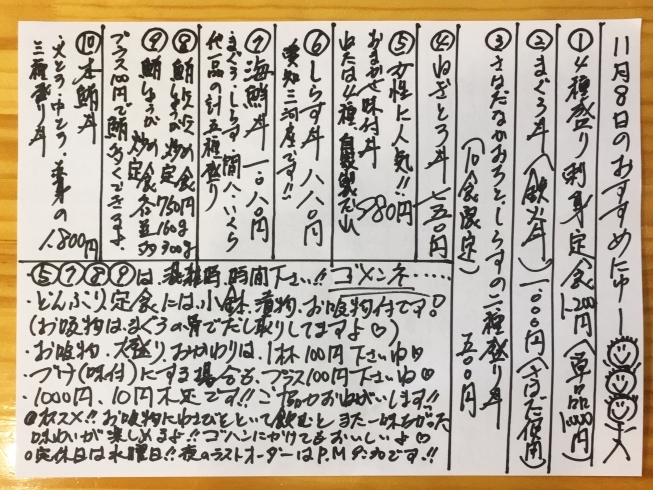 11月8日のおすすめにゅー
①4種盛り刺身定食1200円(単品1000円)
②まぐろ丼(鉄火丼)1000円(きはだ使用)
③きはだなかおちとしらすの二種盛り丼
(10食限定) 500円
④ねぎとろ丼 七五〇円
⑤女性に人気!!
おまかせ味付丼
ねたは4種 自家製だれ
580円
⑥しらす丼 八八〇円
愛知三河産です!!
⑦海鮮丼 一〇八〇円
まぐろ・しらす・間八・いくら
代一品の計五種盛り
⑧鮪炊め定食 750円 160g
⑨鮪しょうが炒め定食
プラス100円で鮪多くできるよ
⑩本鮪丼
大とろ・中とろ・赤身の
三種盛り丼
1,800円
⑤⑦⑧⑨は、混雑時、時間下さい!! ゴメンネ‥‥‥
・どんぶり、定食には、小鉢、漬物、お吸物付です!
(お吸物は、まぐろの骨でだし取りしてますよ♡)
・お吸物、大盛り、おかわりは、1杯100円下さいね♡
・づけ(味付)にする場合も、プラス100円下さいね♡
・1000円、10円不足です!! ご協力お願いします!!
◎おススメ!! お吸物にわさびをといて飲むと、また一味ちがった
味わいが楽しめるよ!! ゴハンにかけてもおいしいよ♡
○定休日は水曜日!! 夜のラストオーダーはP.M 9:30です!!